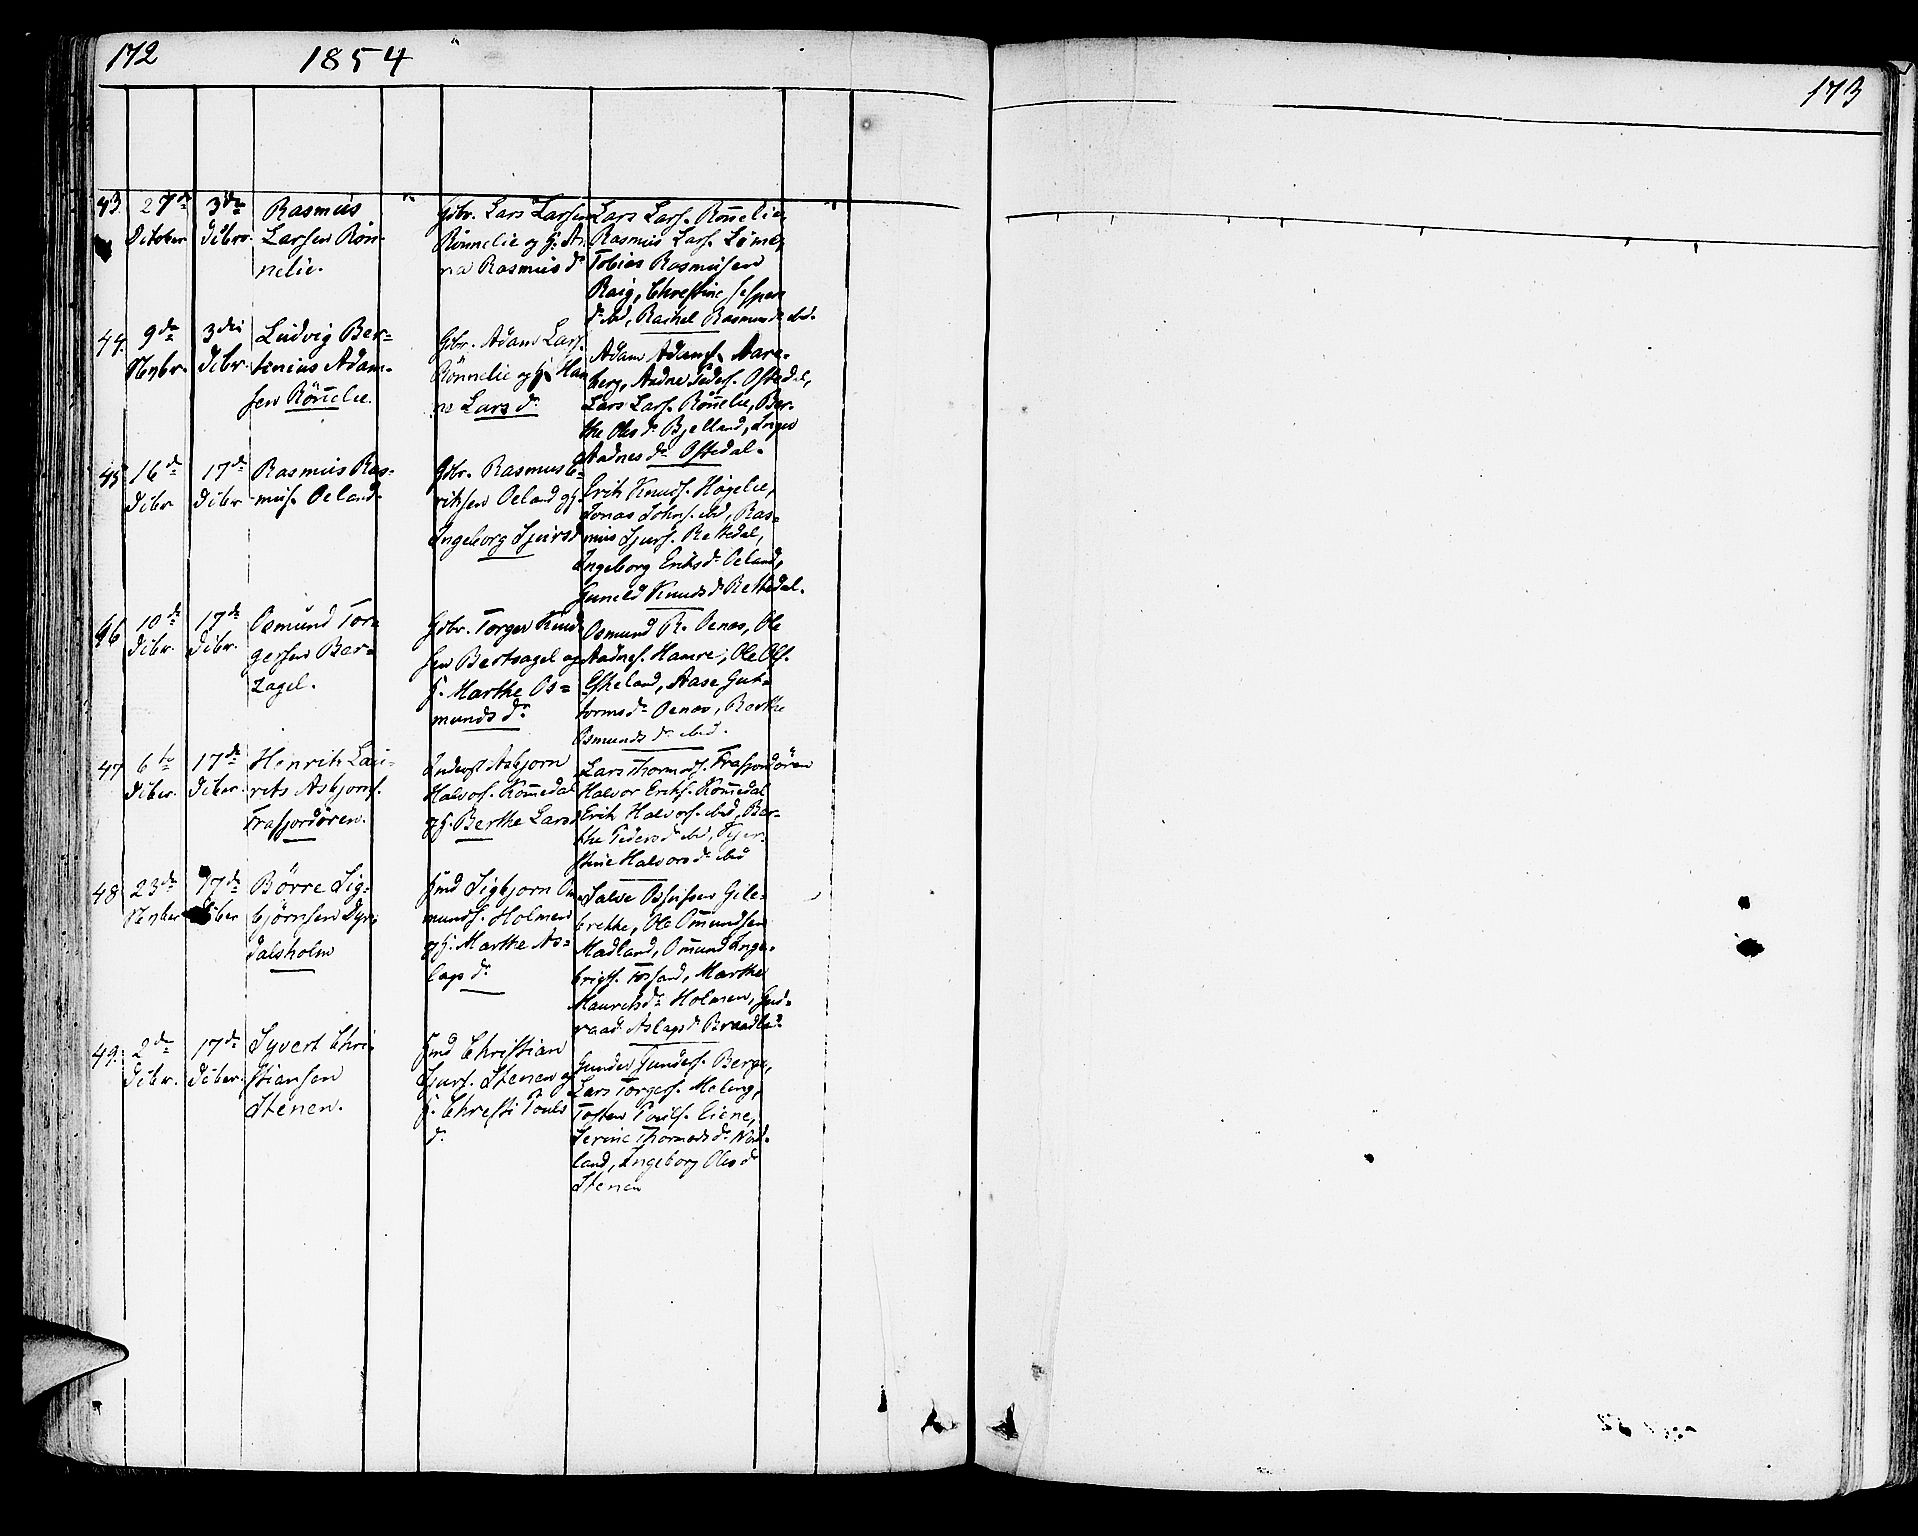 172
1854
173
43. 27de October 3die Dcbr. Rasmus
Larsen Rön-
nelie.
Gbr. Lars Larsen
Rönnelie og H. An-
na Rasmusd.
Lars Lars. Rönnelie,
Rasmus Lars. Löme,
Tobias Rasmusen
Raig, Christine Jesper
d. ibd, Rachel Rasmusd. ibd.
44. 9de Novbr. 3die Dcbr. Ludvig Ber-
tinius Adam-
sen Rönnelie.
Gbr. Adam Lars.
Rönnelie og H. Han
ne Larsd.
Adam Adams. Aare-
berg, Aadne Peders. Oftedal,
Lars Lars. Rönnelie, Ber-
the Olesd. Bjelland, Inger
Aadnesd. Oftedal.
45 16de Dcbr. 17de Dcbr. Rasmus Ras-
mus. Oeland.
Gbr. Rasmus E-
riksen Oeland og H.
Ingeborg Sjursd.
Erik Knuds. Högelie,
Jonas Johns. ibd, Ras-
mus Sjurs. Rettedal,
Ingeborg Eriksd. Oeland,
Guneld Knudsd. Rettedal.
46 10de Dcbr. 17de Dcbr. Osmund Tor-
gersen Ber-
zagel.
Gbr. Torger Knud-
sen Bertsagel og
H. Marthe Os-
mundsd.
Osmund R. Oenæs, Ole
Aadnes. Hamre, Ole Ols.
Eskeland, Aase Gut-
tormsd. Oenæs, Berthe
Osmundsd. ibd.
47 6te Dcber. 17de Dcber. Henrik Lau-
rits Asbjorns.
Frafjordören.
Inderst Asbjorn
Halvors. Kommedal
og H. Berthe Larsd
Lars Thormods. Frafjordören
Halvor Eriks. Kommedal
Erik Halvors. ibd, Ber-
the Pedersd. ibd, Tjer-
stine Halvorsd. ibd
48 23de Novber 17de Dcber Börre Sig-
björnsen Dyri
dalsholm
Hmd Sigbjorn Om
munds. Holmen
og H. Marthe As-
lagsd.
Salve Osmusen Gile-
brekke, Ole Ommundsen
Madland, Ommund Inge-
brigts. Forsand, Marthe
Mauritsd. Holmen, Gud-
raad Aslagsd. Braadland.
49. 2de Dcbr. 17de Dcber. Syvert Chri-
stiansen
Stenen.
Hmd Christian
Sjurs. Stenen og
H. Christi Pouls
d.
Gunder Gunders. Berge,
Lars Torgers. Meling,
Tosten Pouls. Eiene,
Serine Thormodsd. Nord-
land, Ingeborg Olesd.
Stenen